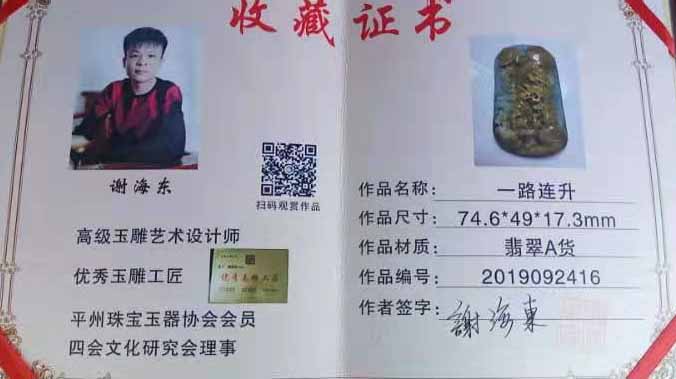 收藏证书
谢海东
扫码观赏作品
高级玉雕艺术设计师
优秀玉雕工匠
优秀玉雕工匠
平州珠宝玉器协会会员
四会文化研究会理事
作品名称: 一路连升
作品尺寸: 74.6*49*17.3mm
作品材质: 翡翠A货
作品编号: 2019092416
作者签字: 謝海東